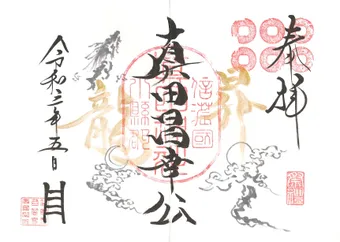 奉拝
昇龍
真田昌幸公
信濃國
小縣郡
令和三年五月